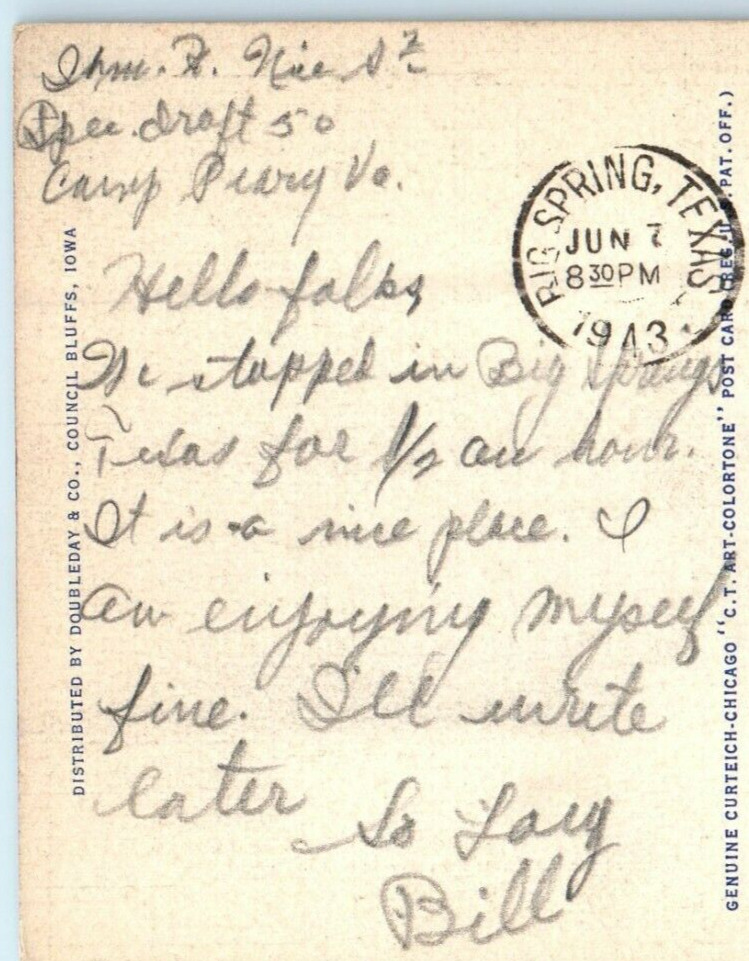 Wm. R. Nice S 2
Spec. draft 50
Camp Peary Va.
BIG SPRING, TEXAS
JUN 7
8 30 PM
1943
Hello folks
We stopped in Big Springs
Texas for 1/2 an hour.
It is a nice place. I
am enjoying myself
fine. I'll write
later
So Long
Bill
DISTRIBUTED BY DOUBLEDAY & CO., COUNCIL BLUFFS, IOWA
GENUINE CURTEICH-CHICAGO "C.T. ART-COLORTONE" POST CARD (REG. U.S. PAT. OFF.)